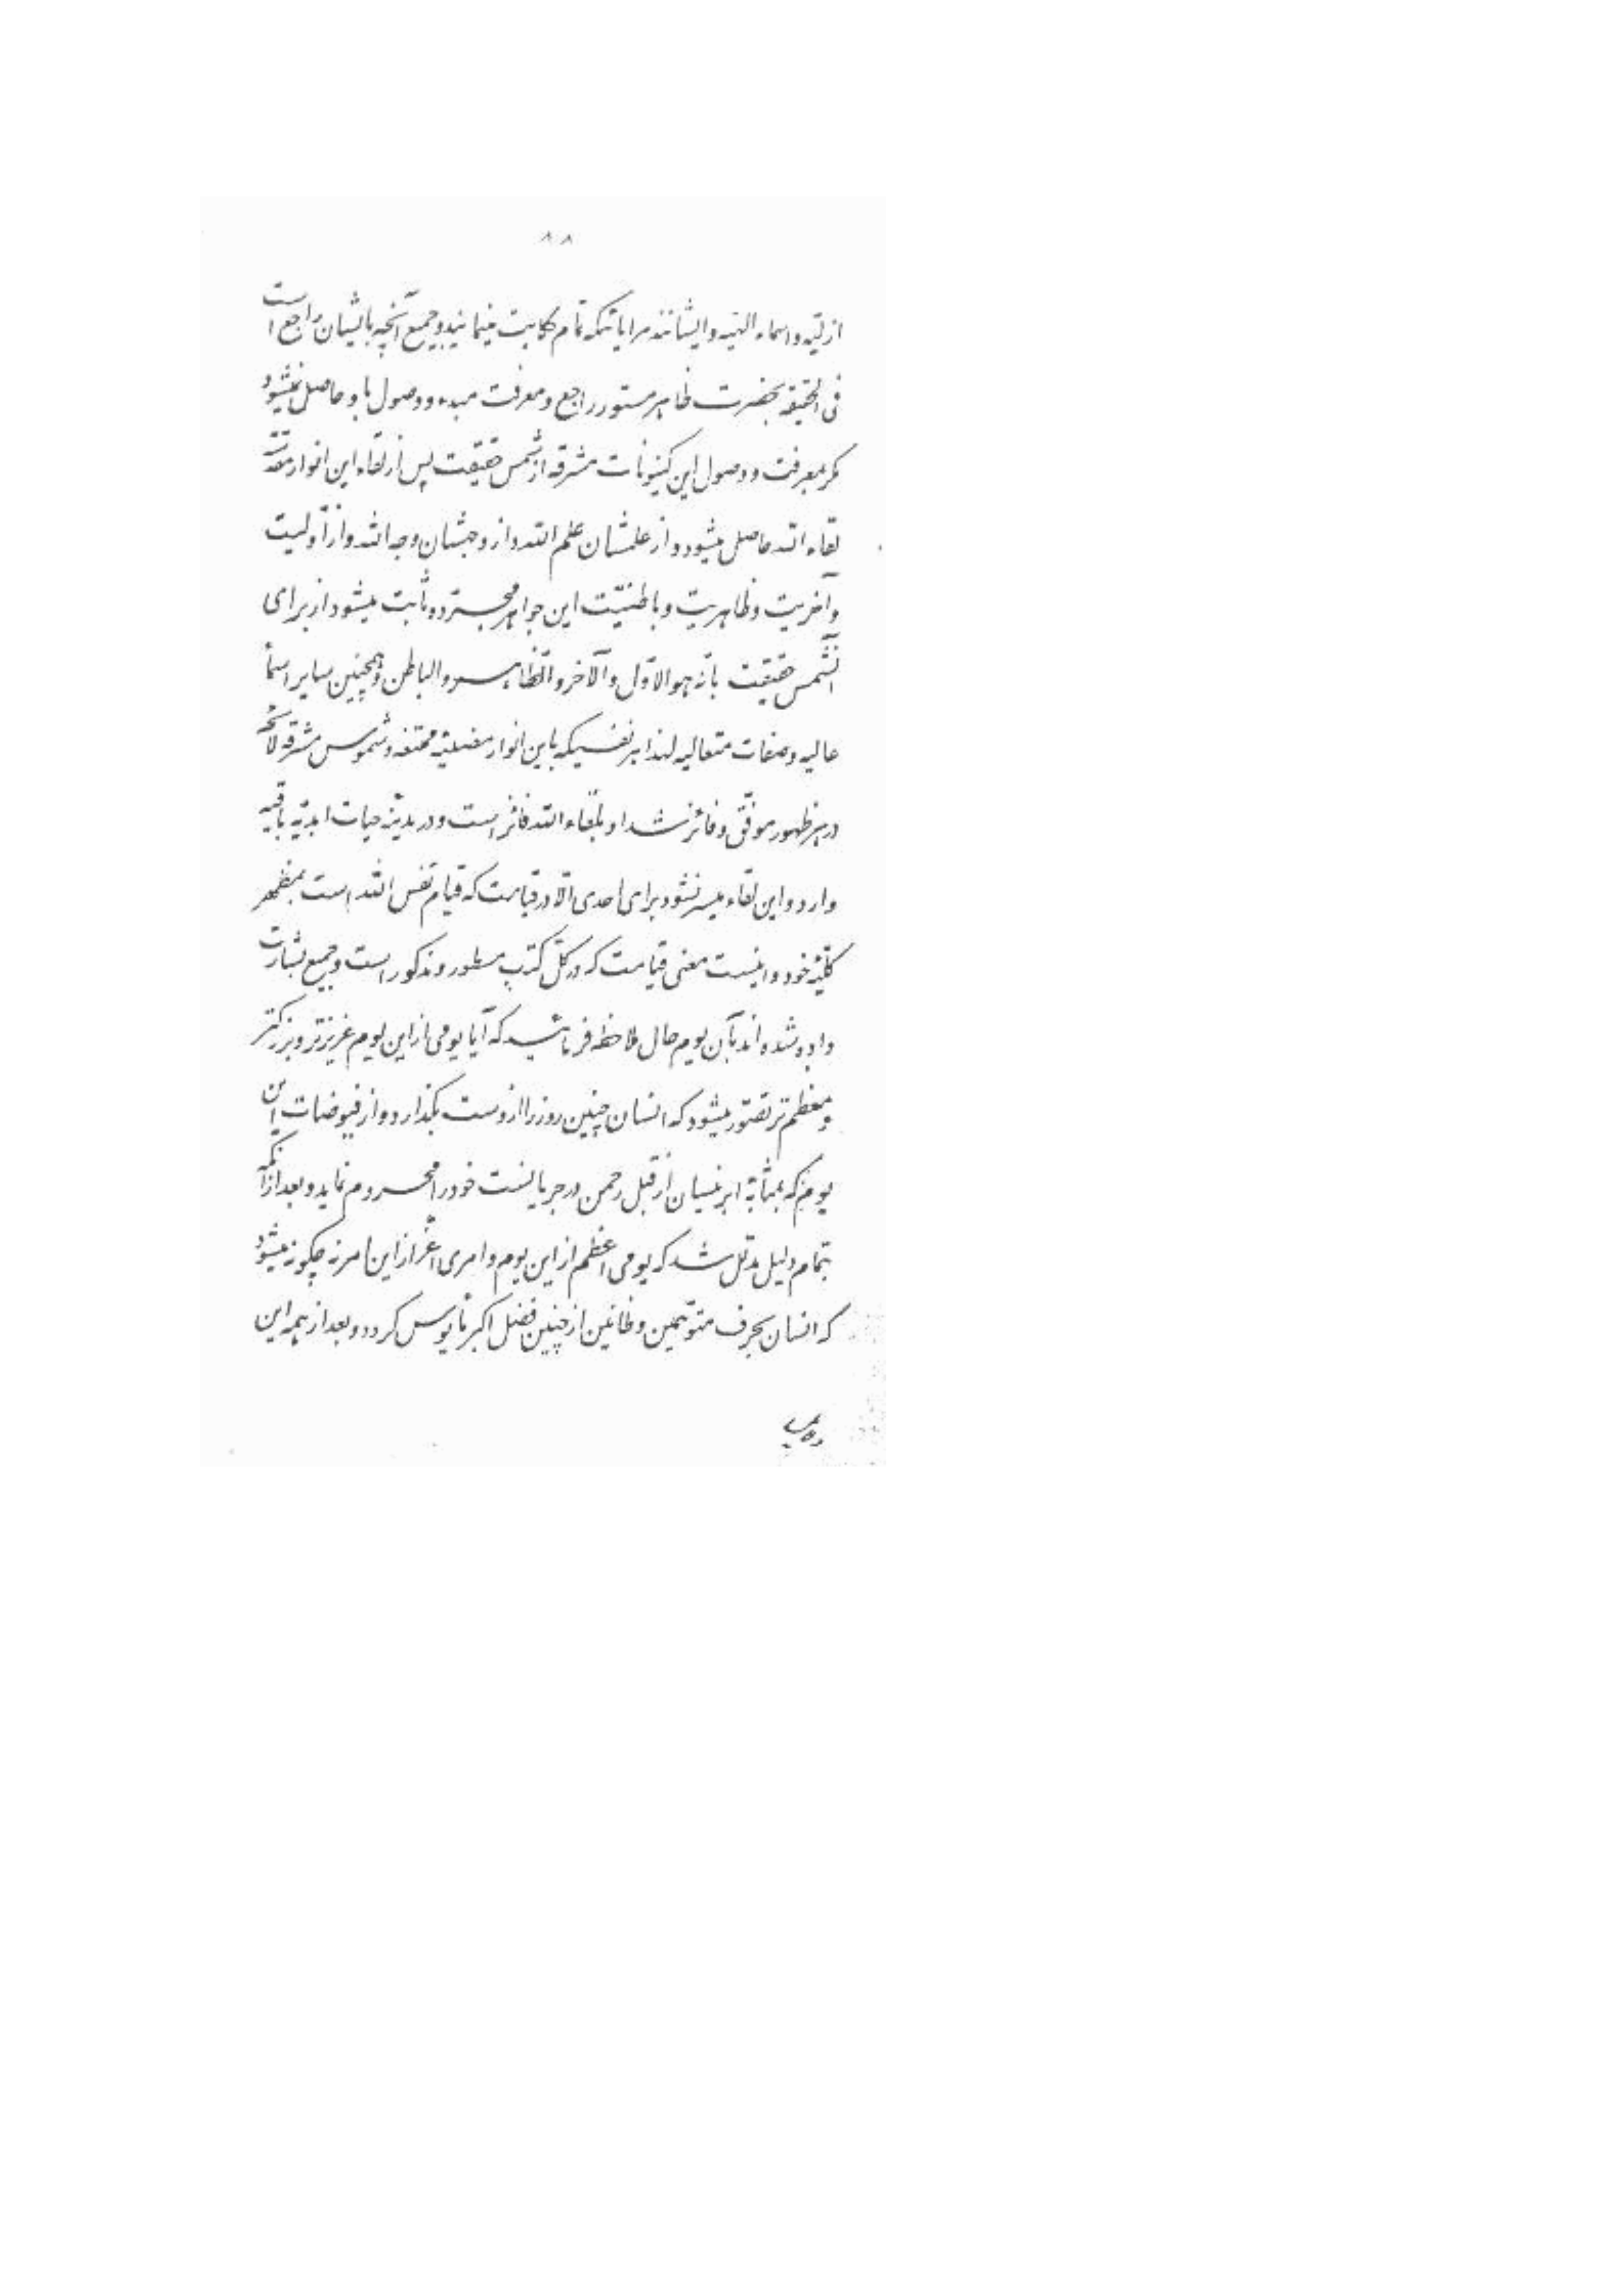 ۸۸
ازلیّه و اسماء الهیّه و ایشانند مرایائیکه تمام حکایت مینمایند و جمیع آنچه بایشان راجع است
فی الحقیقه بحضرت ظاهر مستور راجع و معرفت مبدء و وصول باو حاصل نمیشود
مگر بمعرفت و وصول این کینونات مشرقه از شمس حقیقت پس از لقاء این انوار مقدّسه
لقاء الله حاصل میشود و از علمشان علم الله و از وجهشان وجه الله و از اوّلیت
و آخریت و ظاهریت و باطنیّت این جواهر مجرّده ثابت میشود از برای
آنشمس حقیقت بأنّه هو الاوّل و الآخر و الظّاهر و الباطن و همچنین سایر اسماء
عالیه و صفات متعالیه لهذا هر نفسیکه باین انوار مضیئه ممتنعه و شموس مشرقه لائحه
در هر ظهور موفّق و فائز شد او بلقاء الله فائز است و در مدینه حیات ابدیّه باقیه
وارد و این لقاء میسر نشود برای احدی الّا در قیامت که قیام نفس الله است بمظهر
کلیّه خود و اینست معنی قیامت که در کلّ کتب مسطور و مذکور است و جمیع بشارت
داده شده‌اند بآن یوم حال ملاحظه فرمائید که آیا یومی از این یوم عزیزتر و بزرگتر
و معظم‌تر تصوّر میشود که انسان چنین روز را از دست بگذارد و از فیوضات این
یوم که بمثابه ابر نیسان از قبل رحمن در جریانست خود را محروم نماید و بعد از آنکه
بتمام دلیل مدلّل شد که یومی اعظم از این یوم و امری اعزّ از این امر نه چگونه میشود
که انسان بحرف متوهّمین و ظانّین از چنین فضل اکبر مأیوس گردد و بعد از همه این